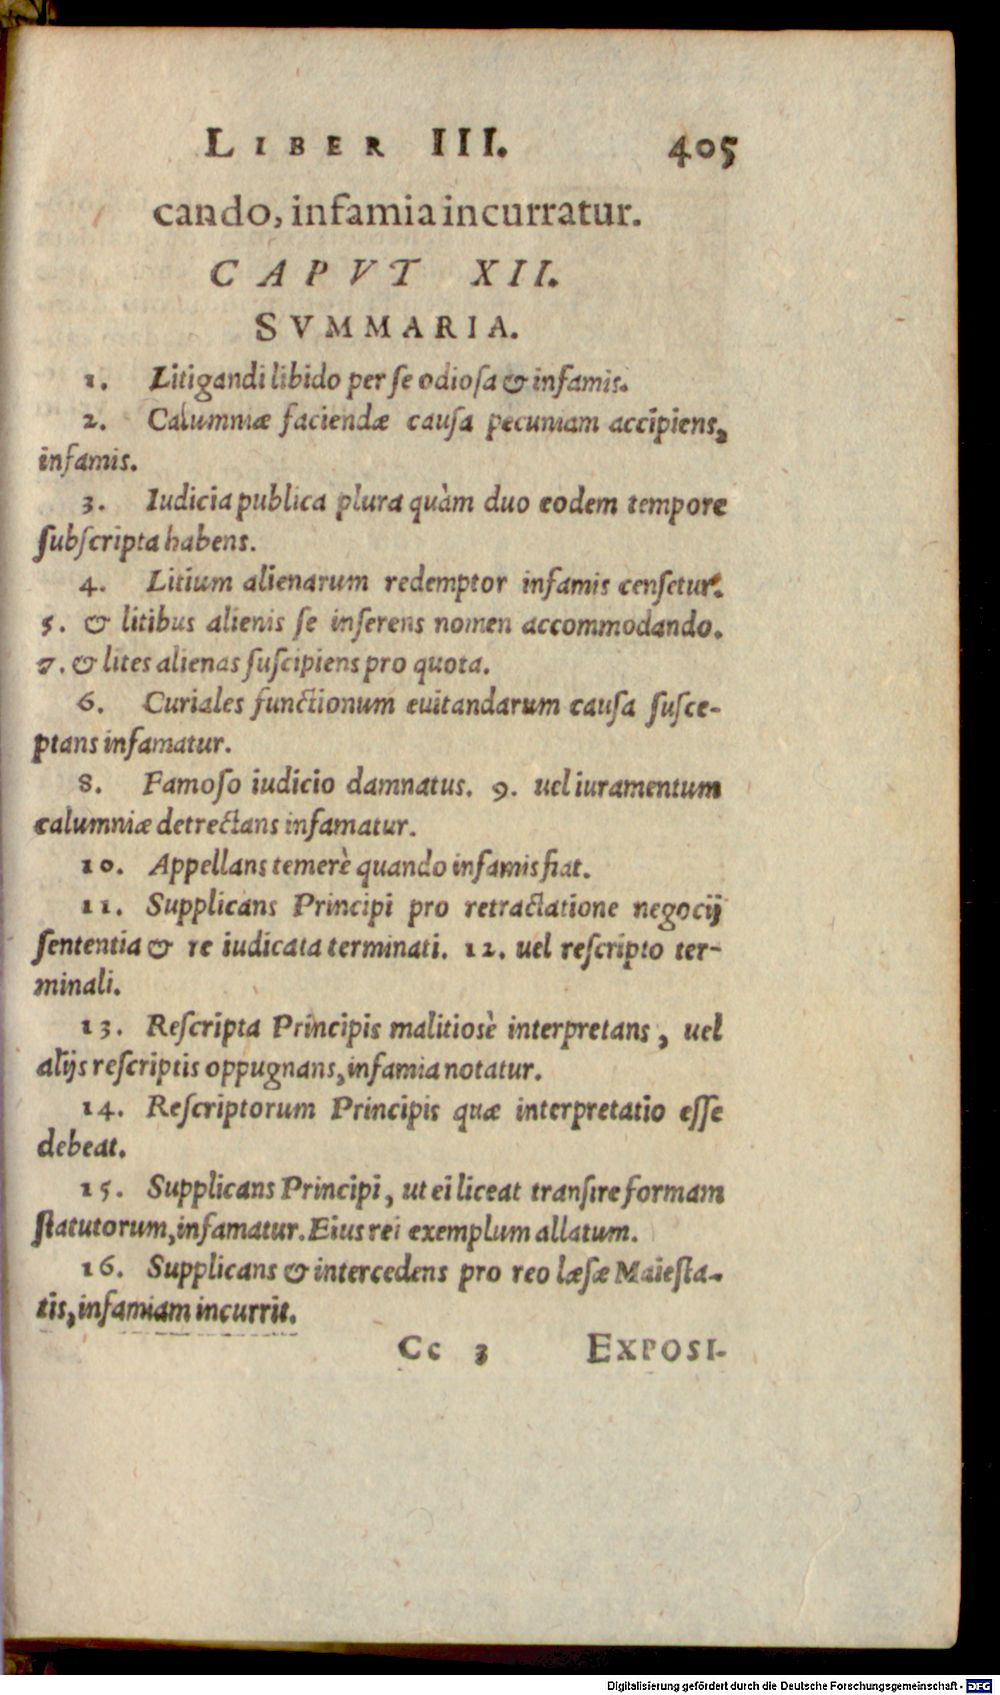 LIBER III. 405
cando, infamia incurratur.
CAPVT XII.
SVMMARIA.
1. Litigandi libido per se odiosa & infamis.
2. Calumniæ faciendæ causa pecuniam accipiens,
infamis.
3. Iudicia publica plura quàm duo eodem tempore
subscripta habens.
4. Litium alienarum redemptor infamis censetur.
5. & litibus alienis se inserens nomen accommodando.
7. & lites alienas suscipiens pro quota.
6. Curiales functionum euitandarum causa susce-
ptans infamatur.
8. Famoso iudicio damnatus. 9. uel iuramentum
calumniæ detrectans infamatur.
10. Appellans temerè quando infamis fiat.
11. Supplicans Principi pro retractatione negocij
sententia & re iudicata terminati. 12. uel rescripto ter-
minali.
13. Rescripta Principis malitiosè interpretans, uel
alijs rescriptis oppugnans, infamia notatur.
14. Rescriptorum Principis quæ interpretatio esse
debeat.
15. Supplicans Principi, ut ei liceat transire formam
statutorum, infamatur. Eius rei exemplum allatum.
16. Supplicans & intercedens pro reo læsæ Maiesta-
tis, infamiam incurrit.
Cc 3 EXPOSI-
Digitalisierung gefördert durch die Deutsche Forschungsgemeinschaft - DFG